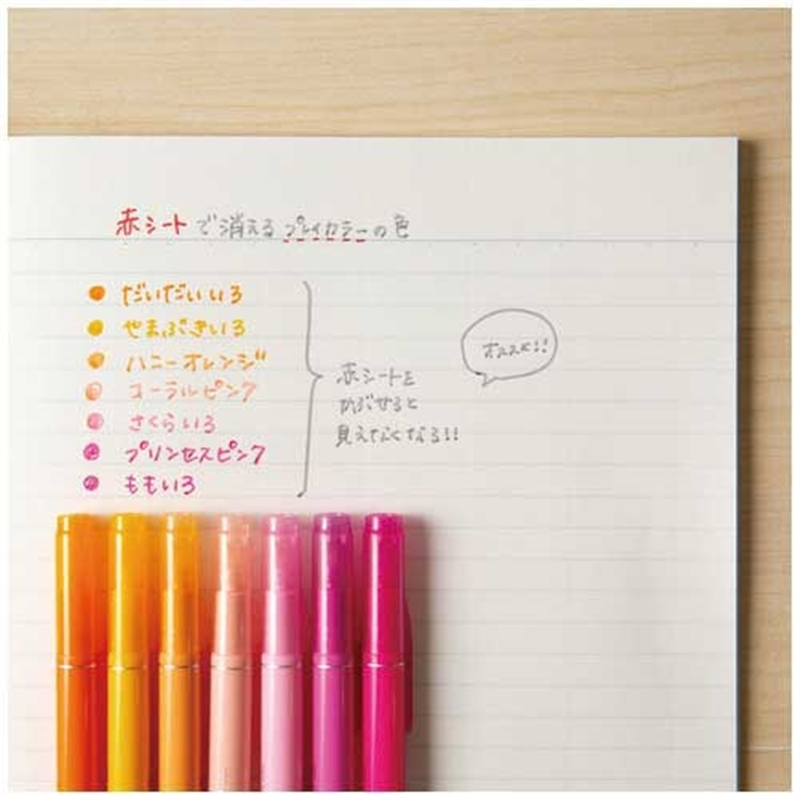 赤シートで消えるプレイカラーの色
だいだいいろ
やまぶきいろ
ハニーオレンジ
コーラルピンク
さくらいろ
プリンセスピンク
ももいろ
赤シートを
かぶせると
見えなくなる!!
オススメ!!